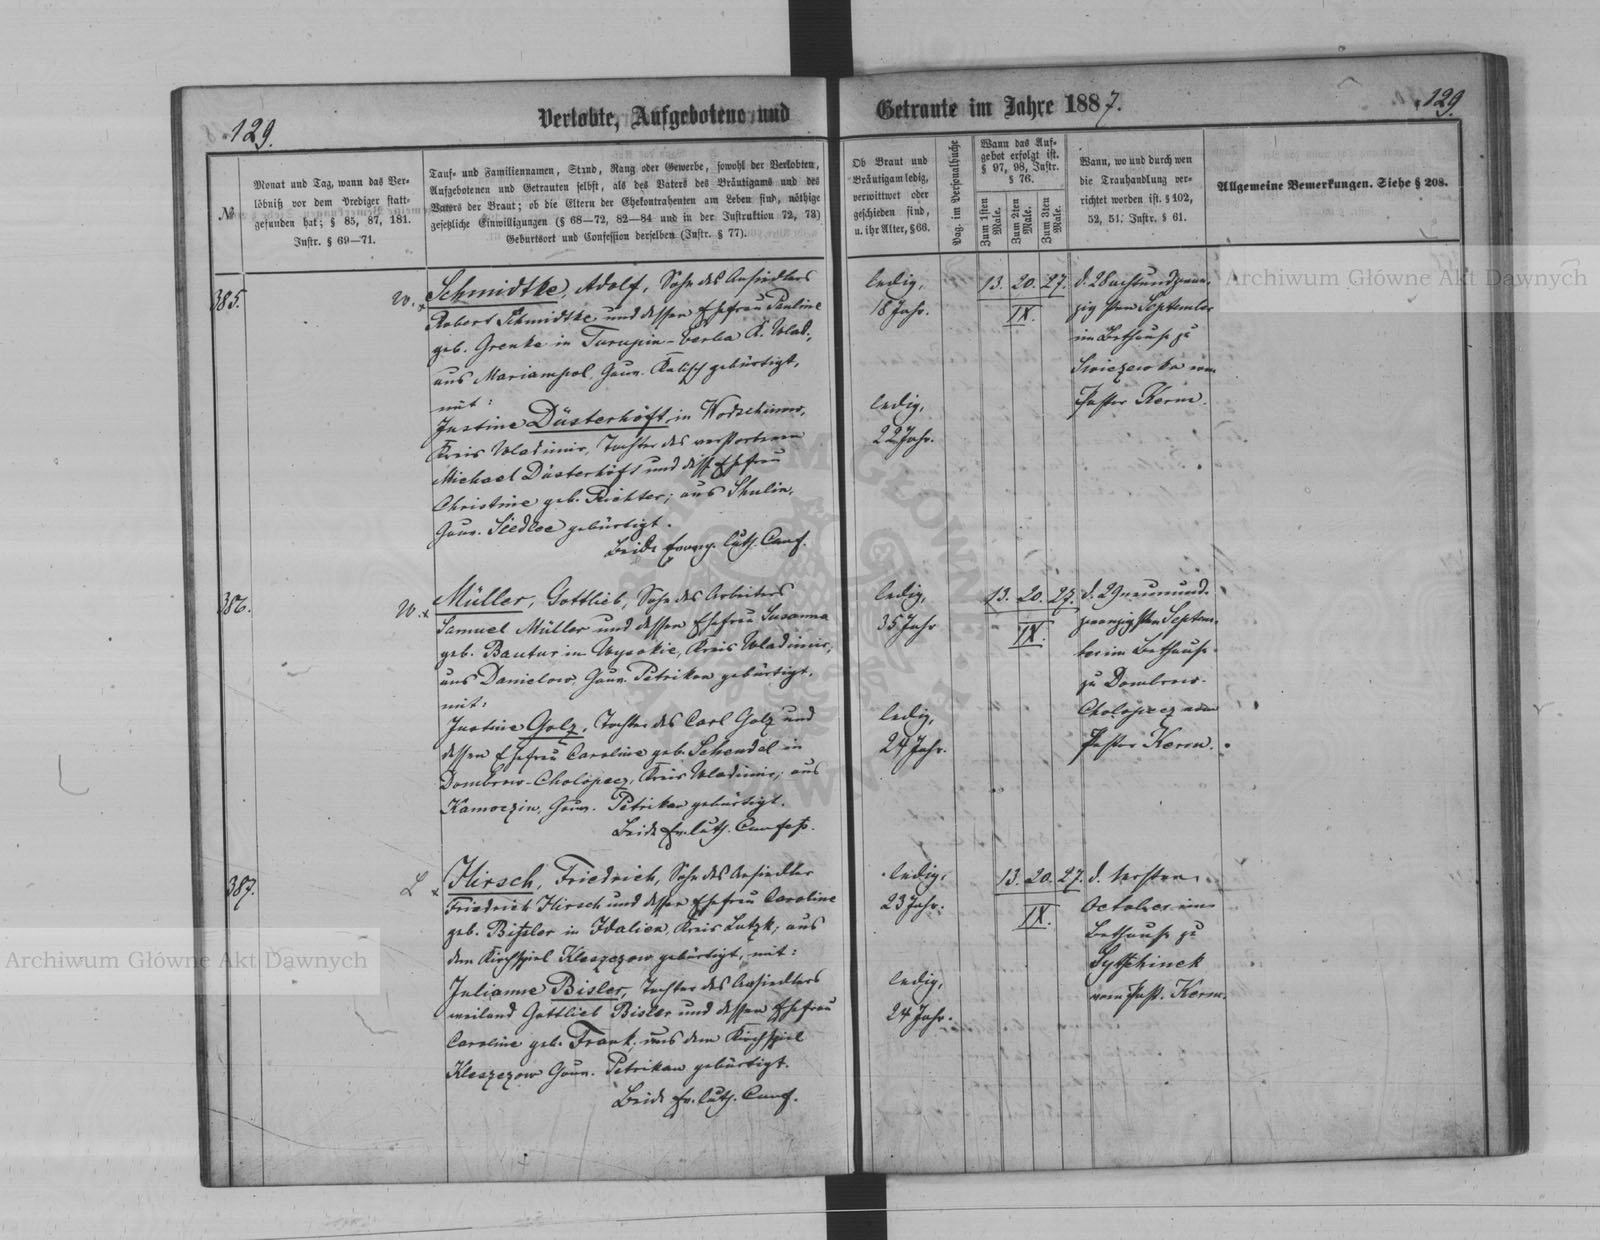 129.
Verlobte, Aufgebotene und
Getraute im Jahre 1887.
129.
№
Monat und Tag, wann das Ver-
löbniß vor dem Prediger statt-
gefunden hat; § 85, 87, 181.
Instr. § 69—71.
Tauf- und Familiennamen, Stand, Rang oder Gewerbe, sowohl der Verlobten,
Aufgebotenen und Getrauten selbst, als des Vaters des Bräutigams und des
Vaters der Braut; ob die Eltern der Ehekontrahenten am Leben sind, nöthige
gesetzliche Einwilligungen (§ 68—72, 82—84 und in der Instruktion 72, 73)
Geburtsort und Confession derselben (Instr. § 77).
Ob Braut und
Bräutigam ledig,
verwittwet oder
geschieden sind,
u. ihr Alter, § 66.
Pag. im Personalbuche
Wann das Auf-
gebot erfolgt ist.
§ 97, 98, Instr.
§ 76.
Zum 1sten Male.
Zum 2ten Male.
Zum 3ten Male.
Wann, wo und durch wen
die Trauhandlung ver-
richtet worden ist. § 102,
52, 51. Instr. § 61.
Allgemeine Bemerkungen. Siehe § 208.
385.
W.
Schmidtke, Adolf, Sohn des Ansiedlers
Robert Schmidtke und dessen Ehefrau Pauline
geb. Grenke in Turupin-Verba K. Wlad.,
aus Mariampol, Gouv. Kalisch gebürtigt,
mit:
Justine Düsterhöft, in
Kreis Wladimir, Tochter des verstorbenen
Michael Düsterhöft und dess. Ehefrau
Christine geb. Richter; aus Shulin,
Gouv. Siedlce gebürtigt.
Beide Evang. luth. Conf.
ledig,
18 Jahr.
ledig,
22 Jahr.
13. 20. 27.
IX.
d. 28 achtundzwan-
zigsten September
im Bethause zu
vom
Pastor Kerm.
386.
W.
Müller, Gottlieb, Sohn des Arbeiters
Samuel Müller und dessen Ehefrau Susanna
geb. Bautur in Wysokie, Kreis Wladimir,
aus Danielow, Gouv. Petrikau gebürtigt,
mit:
Justine Golz, Tochter des Carl Golz und
dessen Ehefrau Caroline geb. Schendel in
Dombrow-Cholopecz, Kreis Wladimir; aus
Kamoczin, Gouv. Petrikau gebürtigt.
Beide Ev. luth. Confess.
ledig,
35 Jahr
ledig,
24 Jahr.
13. 20. 27.
IX.
d. 29 neunund-
zwanzigsten Septem-
ber im Bethause
zu Dombrow-
Cholopecz vom
Pastor Kerm.
387.
L
Hirsch, Friedrich, Sohn des Ansiedler
Friedrich Hirsch und dessen Ehefrau Caroline
geb. Bißler in Idalien, Kreis Lutzk; aus
dem Kirchspiel Kleszczow gebürtigt, mit:
Julianne Bisler, Tochter des Ansiedlers
weiland Gottlieb Bisler und dessen Ehefrau
Caroline geb. Frank; aus dem Kirchspiel
Kleszczow Gouv. Petrikau gebürtigt.
Beide Ev. luth. Conf.
ledig,
23 Jahr.
ledig,
24 Jahr.
13. 20. 27.
IX.
d. ersten
October im
Bethause zu
vom Past. Kerm.
Archiwum Główne Akt Dawnych
Archiwum Główne Akt Dawnych